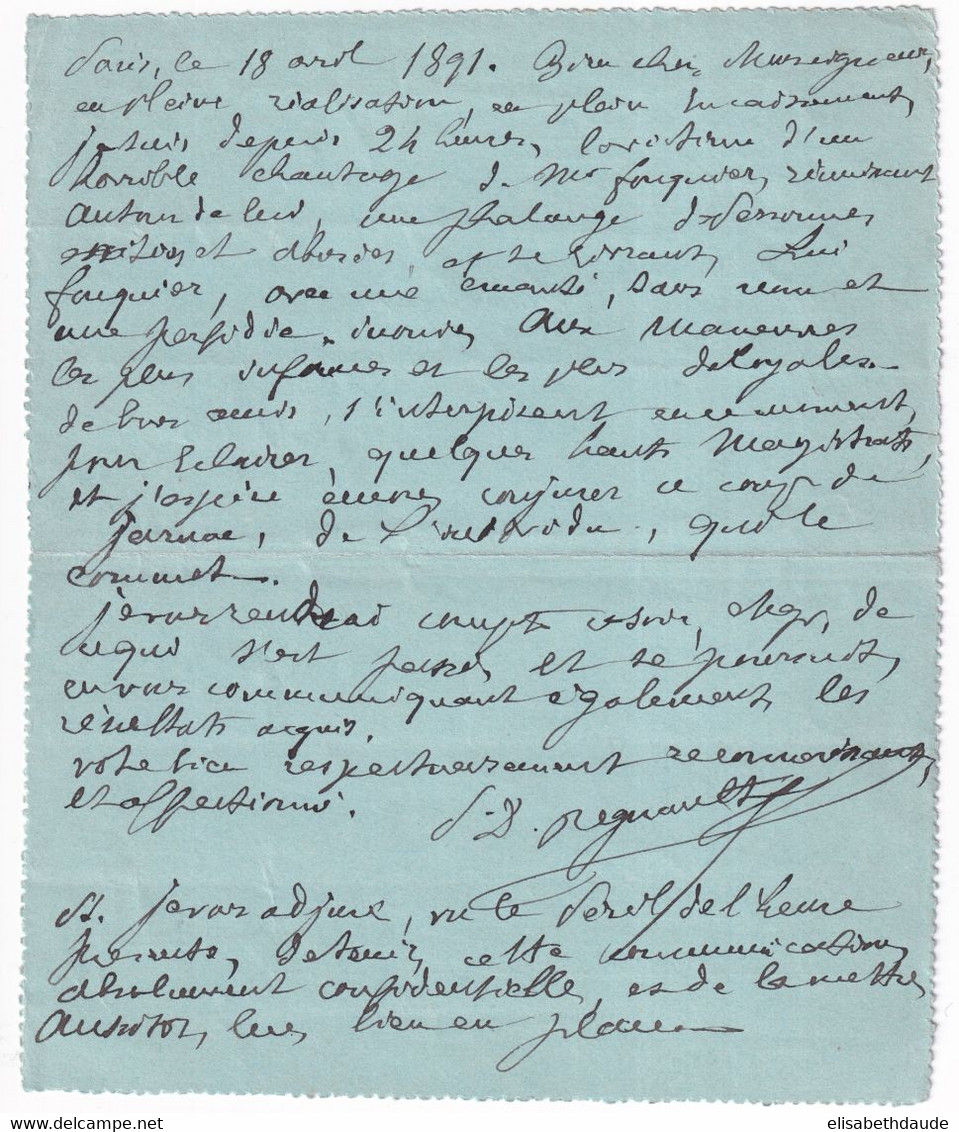 Paris, le 18 avril 1891. Bien cher Monseigneur,
en pleine réalisation, en plein encaissement,
je suis depuis 24 heures, la victime d'un
horrible chantage de Mr fouquier, réunissant
autour de lui, une phalange de personnes
et se livrant, lui
fouquier, avec une sans nom et
une perfidie inouïe, aux manœuvres
les plus infâmes et les plus déloyales.
de bons amis, s'interposent en ce moment,
pour éclairer, quelques hauts Magistrats,
et j'espère encore conjurer ce coup de
Jarnac, de l'individu, qui le
commet.
je vous rendrai compte ce soir, de
ce qui s'est passé, et se poursuit,
en vous communiquant également, les
résultats acquis.
votre bien respectueusement reconnaissant,
et affectionné.
P.D. Regnault
PS. je vous adjure, vu le péril de l'heure
présente, de tenir, cette communication,
absolument confidentielle, et de la mettre,
aussitôt, lue, bien en place
elisabethdaude